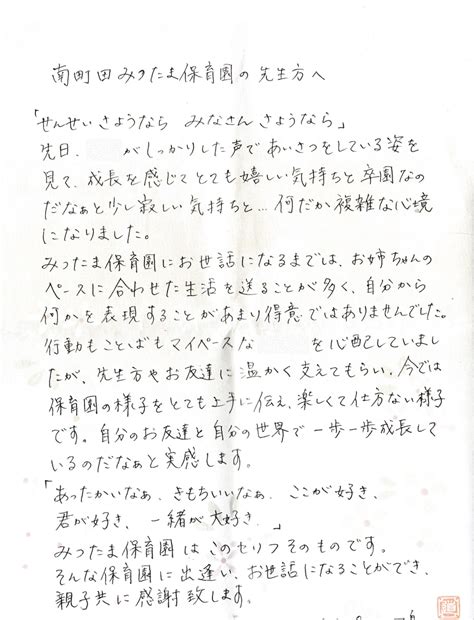 南町田みつたま保育園の先生方へ
「せんせいさようなら みなさんさようなら」
先日、 がしっかりした声であいさつをしている姿を
見て、成長を感じてとても嬉しい気持ちと卒園なの
だなぁと少し寂しい気持ちと…何だか複雑な心境
になりました。
みつたま保育園にお世話になるまでは、お姉ちゃんの
ペースに合わせた生活を送ることが多く、自分から
何かを表現することがあまり得意ではありませんでした。
行動もことばもマイペースな を心配していまし
たが、先生方やお友達に温かく支えてもらい、今では
保育園の様子をとても上手に伝え、楽しくて仕方ない様子
です。自分のお友達と自分の世界で一歩一歩成長して
いるのだなぁと実感します。
「あったかいなぁ、きもちいいなぁ、ここが好き、
君が好き、一緒が大好き。」
みつたま保育園はこのセリフそのものです。
そんな保育園に出逢い、お世話になることができ、
親子共に感謝致します。